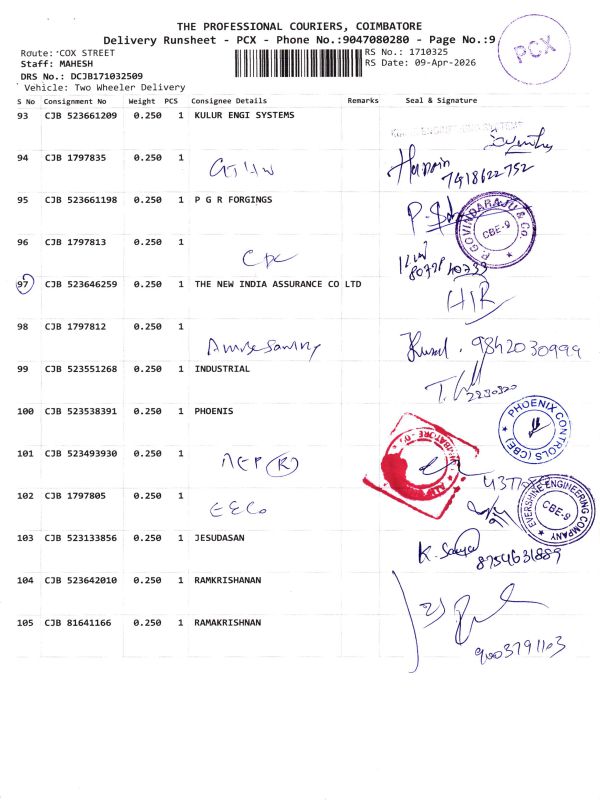 THE PROFESSIONAL COURIERS, COIMBATORE
Delivery Runsheet - PCX - Phone No.:9047080280 - Page No.:9
PCX
Route: COX STREET
RS No.: 1710325
Staff: MAHESH
RS Date: 09-Apr-2026
DRS No.: DCJB171032509
Vehicle: Two Wheeler Delivery
S No Consignment No Weight PCS Consignee Details Remarks Seal & Signature
93 CJB 523661209 0.250 1 KULUR ENGI SYSTEMS
94 CJB 1797835 0.250 1
7418622752
95 CJB 523661198 0.250 1 P G R FORGINGS
P. GOVINDARAJU & Co. CBE-9
96 CJB 1797813 0.250 1
CPC
97 CJB 523646259 0.250 1 THE NEW INDIA ASSURANCE CO LTD
98 CJB 1797812 0.250 1
9842030999
99 CJB 523551268 0.250 1 INDUSTRIAL
100 CJB 523538391 0.250 1 PHOENIS
PHOENIX CONTROLS (CBE)
101 CJB 523493930 0.250 1
AEP (R)
102 CJB 1797805 0.250 1
EECo
EVERSHINE ENGINEERING COMPANY CBE-9
103 CJB 523133856 0.250 1 JESUDASAN
K.
8754631889
104 CJB 523642010 0.250 1 RAMKRISHANAN
105 CJB 81641166 0.250 1 RAMAKRISHNAN
9003791103